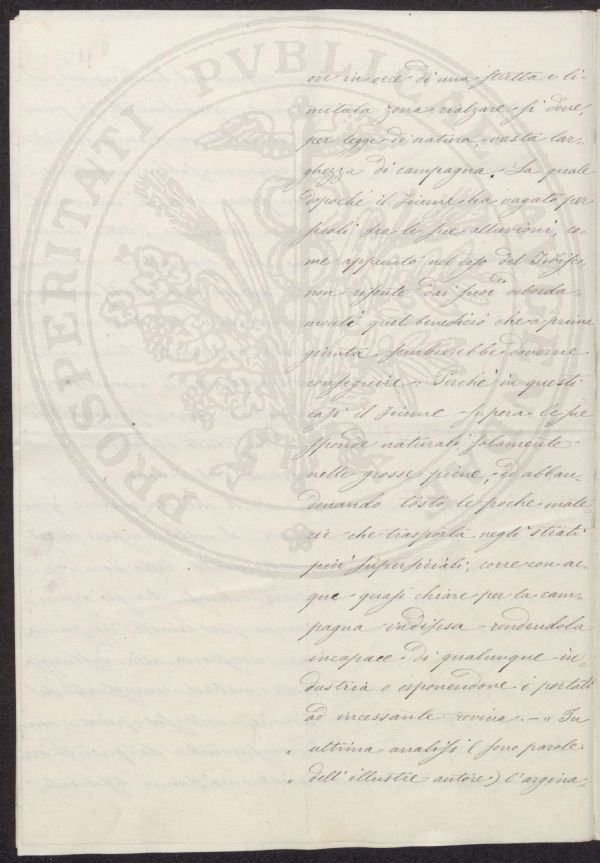 PROSPERITATI PVBLICAE
ove in vece di una stretta e li-
mitata zona rialzare si deve,
per legge di natura, vasta lar-
ghezza di campagna. La quale
dopochè il Fiume ha vagato per
secoli fra le sue alluvioni, co-
me appunto nel caso del Tibisco,
non risente dai suoi deborda-
menti quel beneficio che a prima
giunta sembrerebbe doverne
conseguire: Perchè in questi
casi il Fiume supera le sue
sponde naturali, solamente
nelle grosse piene, ed abban-
donando tosto le poche mate-
rie che trasporta negli strati
più superficiali, corre con ac-
que quasi chiare per la cam-
pagna indifesa rendendola
incapace di qualunque in-
dustria o esponendone i portati
ad incessante rovina. — „ In
„ ultima analisi (sono parole
„ dell' illustre autore) l'argina-